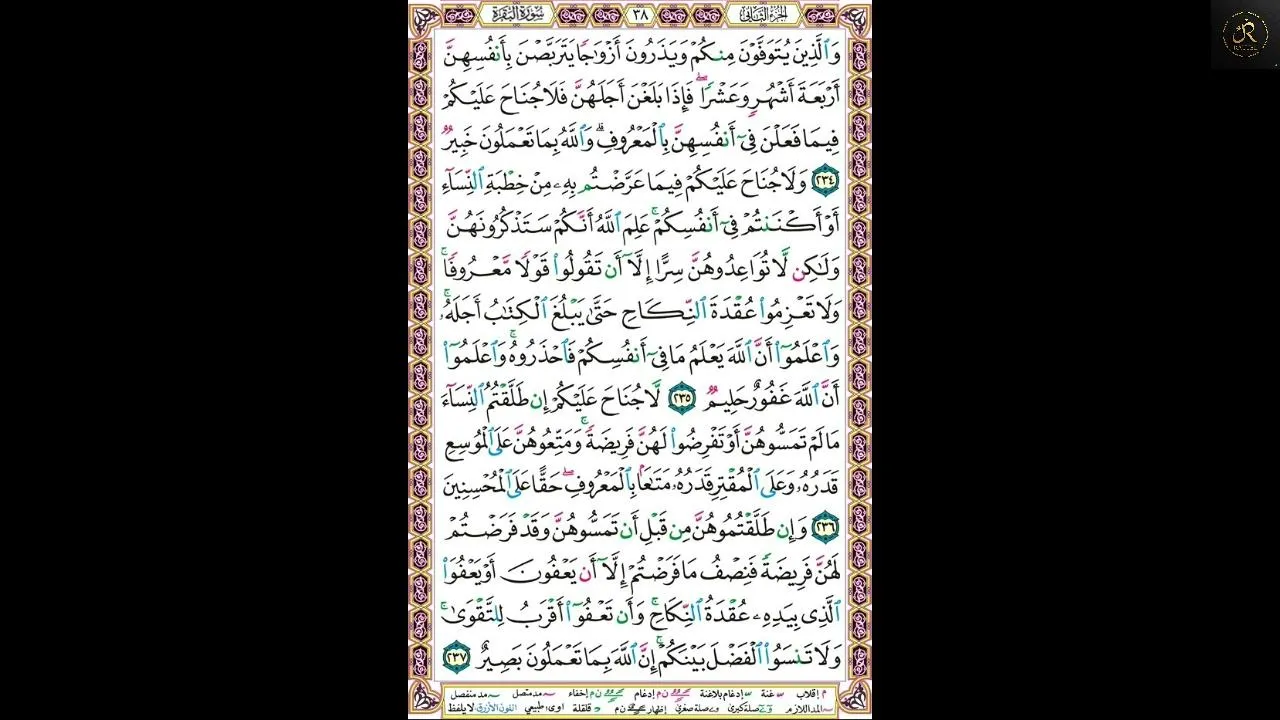 سُورَةُ البَقَرَةِ ٣٨ الجُزْءُ الثَّانِي
وَٱلَّذِينَ يُتَوَفَّوْنَ مِنكُمْ وَيَذَرُونَ أَزْوَٰجًا يَتَرَبَّصْنَ بِأَنفُسِهِنَّ
أَرْبَعَةَ أَشْهُرٍ وَعَشْرًا ۖ فَإِذَا بَلَغْنَ أَجَلَهُنَّ فَلَا جُنَاحَ عَلَيْكُمْ
فِيمَا فَعَلْنَ فِىٓ أَنفُسِهِنَّ بِٱلْمَعْرُوفِ ۗ وَٱللَّهُ بِمَا تَعْمَلُونَ خَبِيرٌ
٢٣٤ وَلَا جُنَاحَ عَلَيْكُمْ فِيمَا عَرَّضْتُم بِهِۦ مِنْ خِطْبَةِ ٱلنِّسَآءِ
أَوْ أَكْنَنتُمْ فِىٓ أَنفُسِكُمْ ۚ عَلِمَ ٱللَّهُ أَنَّكُمْ سَتَذْكُرُونَهُنَّ
وَلَٰكِن لَّا تُوَاعِدُوهُنَّ سِرًّا إِلَّآ أَن تَقُولُوا۟ قَوْلًا مَّعْرُوفًا ۚ
وَلَا تَعْزِمُوا۟ عُقْدَةَ ٱلنِّكَاحِ حَتَّىٰ يَبْلُغَ ٱلْكِتَٰبُ أَجَلَهُۥ ۚ
وَٱعْلَمُوٓا۟ أَنَّ ٱللَّهَ يَعْلَمُ مَا فِىٓ أَنفُسِكُمْ فَٱحْذَرُوهُ ۚ وَٱعْلَمُوٓا۟
أَنَّ ٱللَّهَ غَفُورٌ حَلِيمٌ ٢٣٥ لَّا جُنَاحَ عَلَيْكُمْ إِن طَلَّقْتُمُ ٱلنِّسَآءَ
مَا لَمْ تَمَسُّوهُنَّ أَوْ تَفْرِضُوا۟ لَهُنَّ فَرِيضَةً ۚ وَمَتِّعُوهُنَّ عَلَى ٱلْمُوسِعِ
قَدَرُهُۥ وَعَلَى ٱلْمُقْتِرِ قَدَرُهُۥ مَتَٰعًۢا بِٱلْمَعْرُوفِ ۖ حَقًّا عَلَى ٱلْمُحْسِنِينَ
٢٣٦ وَإِن طَلَّقْتُمُوهُنَّ مِن قَبْلِ أَن تَمَسُّوهُنَّ وَقَدْ فَرَضْتُمْ
لَهُنَّ فَرِيضَةً فَنِصْفُ مَا فَرَضْتُمْ إِلَّآ أَن يَعْفُونَ أَوْ يَعْفُوَا۟
ٱلَّذِى بِيَدِهِۦ عُقْدَةُ ٱلنِّكَاحِ ۚ وَأَن تَعْفُوٓا۟ أَقْرَبُ لِلتَّقْوَىٰ ۚ
وَلَا تَنسَوُا۟ ٱلْفَضْلَ بَيْنَكُمْ ۚ إِنَّ ٱللَّهَ بِمَا تَعْمَلُونَ بَصِيرٌ ٢٣٧
م إقلاب غنة إدغام بلاغنة ن م إدغام ن م إخفاء مد متصل مد منفصل
المد اللازم صلة كبرى صلة صغرى إظهار ن م قلقلة اوى طبيعي اللون الأزرق لا يلفظ